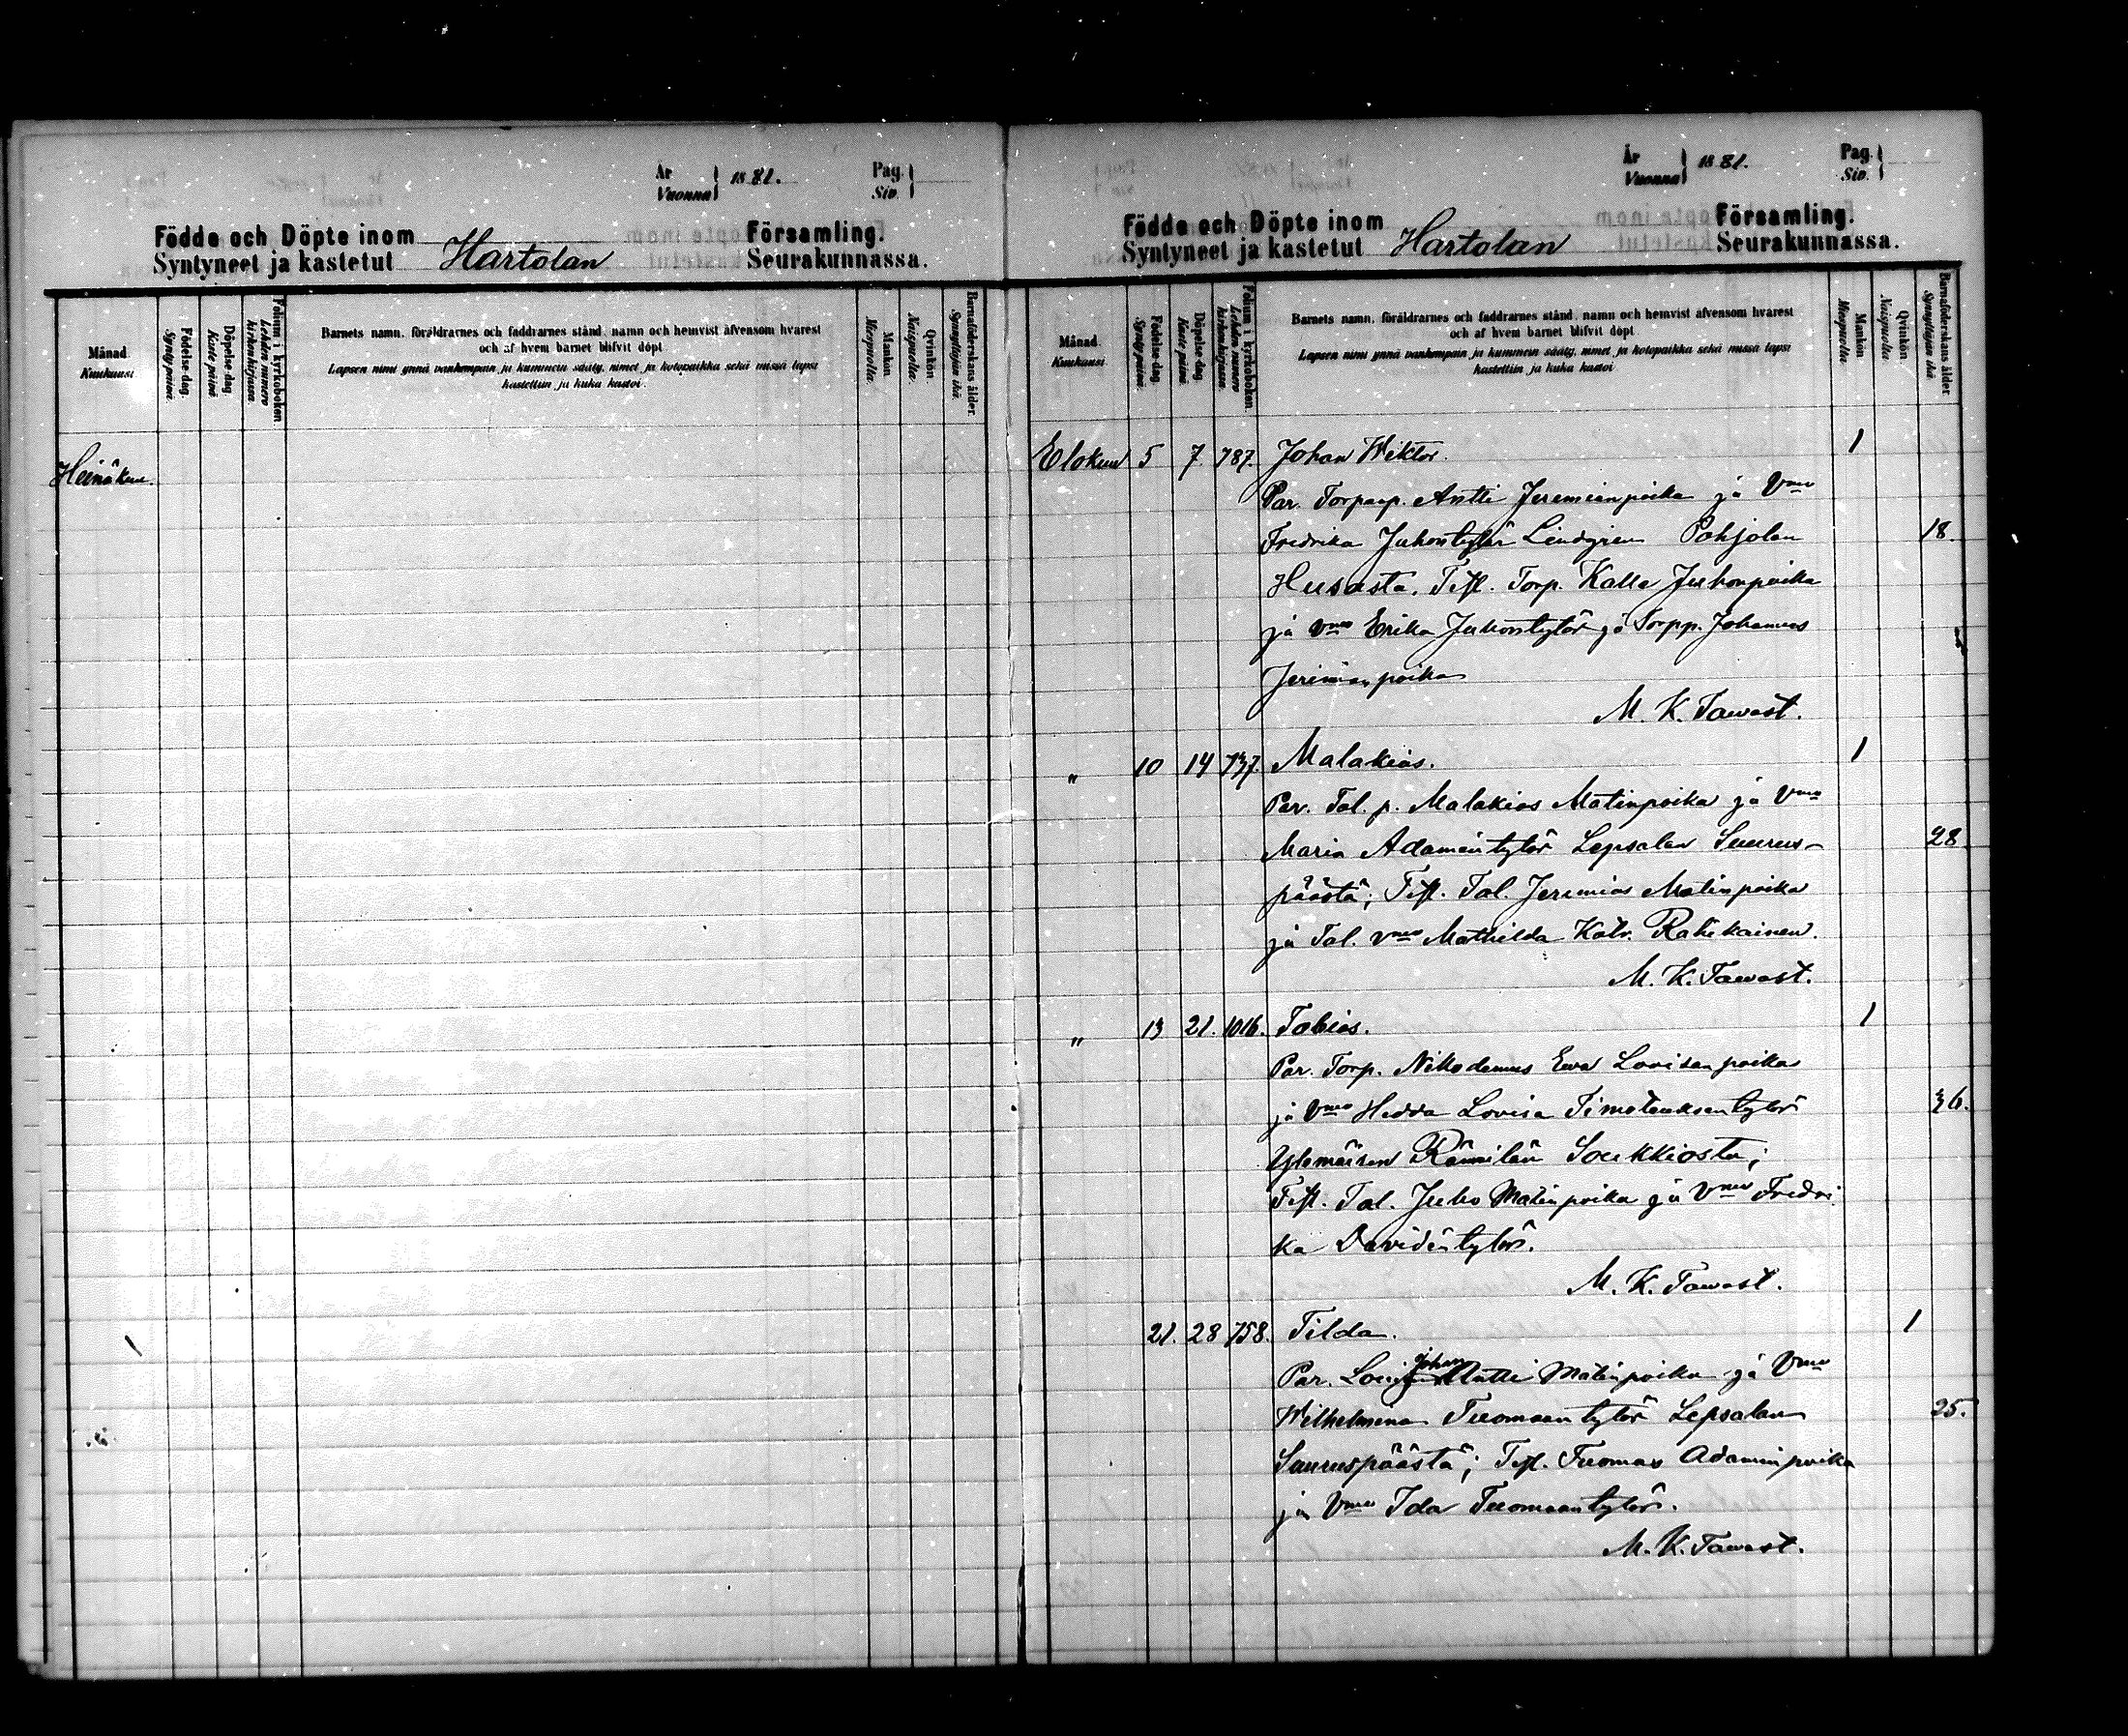 År
Vuonna } 1881.
Pag.
Siv. }
Födde och Döpte inom Församling.
Syntyneet ja kastetut Hartolan Seurakunnassa.
Månad.
Kuukausi
Födelse-dag.
Synty-päivä.
Döpelse-dag
Kaste päivä
Folium i kyrkoboken
Lehden numero
kirkonkirjassa.
Barnets namn, föräldrarnes och faddrarnes stånd, namn och hemvist äfvensom hvarest
och af hvem barnet blifvit döpt
Lapsen nimi ynnä vanhempain ja kummein sääty, nimet ja kotopaikka sekä missä lapsi
kastettiin ja kuka kastoi.
Mankön
Miespuolia.
Qvinkön.
Naispuolia.
Barnaföderskans ålder.
Synnyttäjän ikä.
Heinäkuu.
År
Vuonna } 1881.
Pag.
Siv. }
Födde och Döpte inom Församling.
Syntyneet ja kastetut Hartolan Seurakunnassa.
Månad.
Kuukausi
Födelse-dag
Synty päivä
Döpelse-dag
Kaste päivä
Folium i kyrkoboken.
Lehden numero
kirkonkirjassa.
Barnets namn, föräldrarnes och faddrarnes stånd, namn och hemvist äfvensom hvarest
och af hvem barnet blifvit döpt
Lapsen nimi ynnä vanhempain ja kummein sääty, nimet ja kotopaikka sekä missä lapsi
kastettiin ja kuka kastoi
Mankön
Miespuolia
Qvinkön
Naispuolia.
Barnaföderskans ålder
Synnyttäjän ikä
Elokuu 5 7. 787. Johan Wiktor. 1
Par. Torp. Antti Jeremianpoika ja Vmo
Fredrika Juhontytär Lindgren Pohjolan 18.
Husasta. Test. Torp. Kalle Juhonpoika
ja Vmo Erika Juhontytär ja Torpp. Johannes
Jeremianpoika
M. K. Tawast.
„ 10 14 737. Malakias. 1
Par. Tal. p. Malakias Matinpoika ja Vmo
Maria Adamintytär Lepsalan Suurus- 28.
päästä; Test. Tal. Jeremias Matinpoika
ja Tal. vmo Mathilda Katr. Rahikainen.
M. K. Tawast.
„ 13 21. 1016. Tobias. 1
Par. Torp. Nikodemus Ewa Lovisanpoika
ja Vmo Hedda Lovisa Timoteuksentytär 36.
Ylemäisen Rämilän Soukkiosta;
Test. Tal. Juho Matinpoika ja Vmo Fredri
ka Davidintytär.
M. K. Tawast.
21. 28 758. Tilda. 1
Par. Johan Antti Matinpoika ja Vmo
Wilhelmina Tuomaantytär Lepsalan 25.
Suuruspäästä; Test. Tuomas Adaminpoika
ja Vmo Ida Tuomaantytär.
M. K. Tawast.